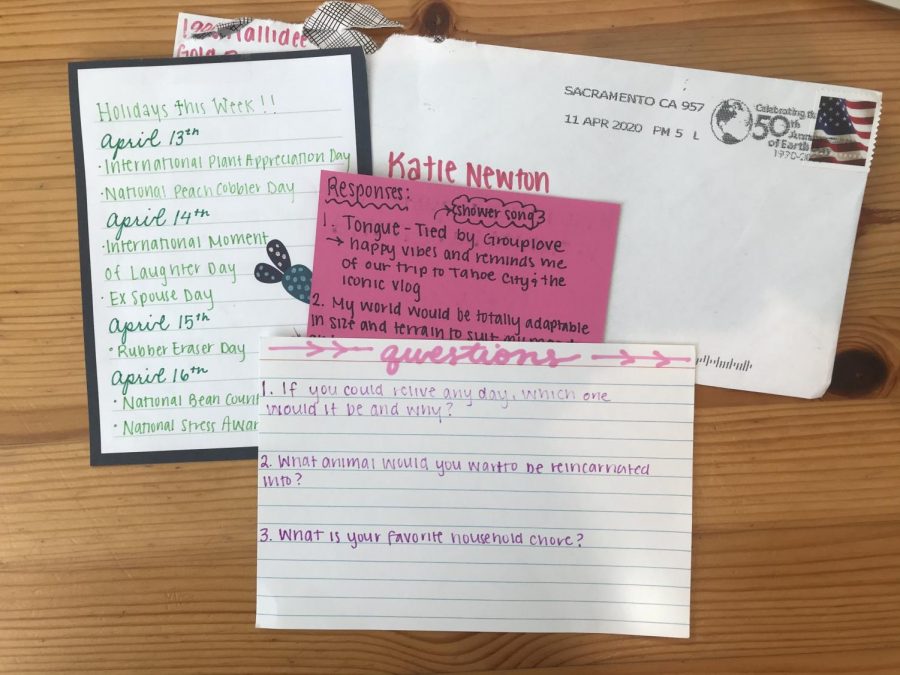 Holidays this Week!!
April 13th
· International Plant Appreciation Day
· National Peach Cobbler Day
April 14th
· International Moment
of Laughter Day
· Ex Spouse Day
April 15th
· Rubber Eraser Day
April 16th
· National Bean Count
· National Stress Awar
SACRAMENTO CA 957
11 APR 2020 PM 5 L
Celebrating th
50th
of Earth
1970-20
Katie Newton
Responses:
shower song
1. Tongue-Tied by Grouplove
→ happy vibes and reminds me
of our trip to Tahoe City & the
iconic vlog
2. My world would be totally adaptable
in size and terrain to suit my mood
questions
1. If you could relive any day, which one
would it be and why?
2. What animal would you want to be reincarnated
into?
3. What is your favorite household chore?